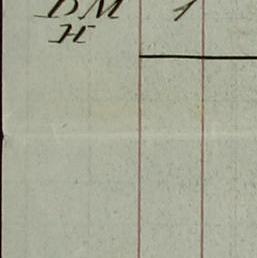 DM 1
H